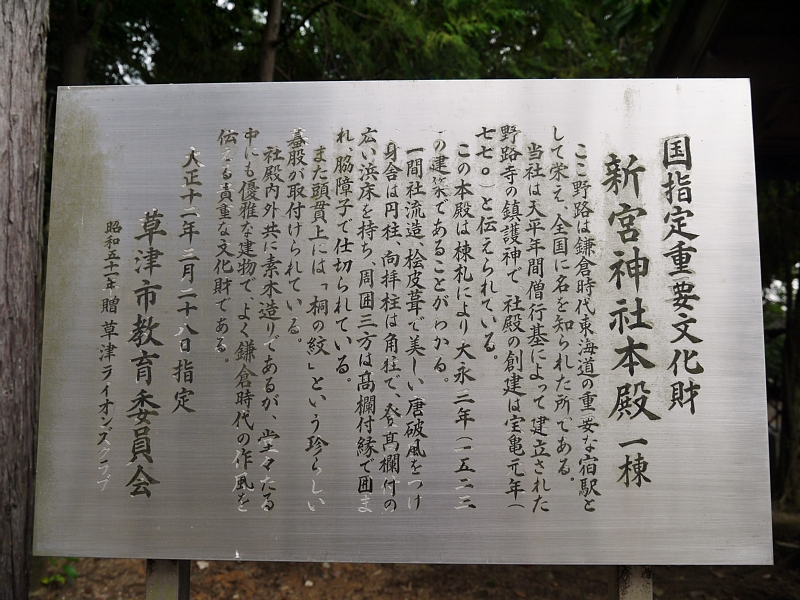 国指定重要文化財
新宮神社本殿 一棟
ここ野路は鎌倉時代東海道の重要な宿駅と
して栄え、全国に名を知られた所である。
当社は天平年間僧行基によって建立された
野路寺の鎮護神で、社殿の創建は宝亀元年(
七七〇)と伝えられている。
この本殿は棟札により大永三年(一五二三
の建築であることがわかる。
一間社流造、桧皮葺で美しい唐破風をつけ
身舎は円柱、向拝柱は角柱で、登高欄付の
広い浜床を持ち、周囲三方は高欄付縁で囲ま
れ、脇障子で仕切られている。
また頭貫上には「桐の紋」という珍らしい
蟇股が取付けられている。
社殿内外共に素木造りであるが、堂々たる
中にも優雅な建物で、よく鎌倉時代の作風を
伝える貴重な文化財である。
大正十二年三月二十八日指定
草津市教育委員会
昭和五十一年 贈 草津ライオンズクラブ